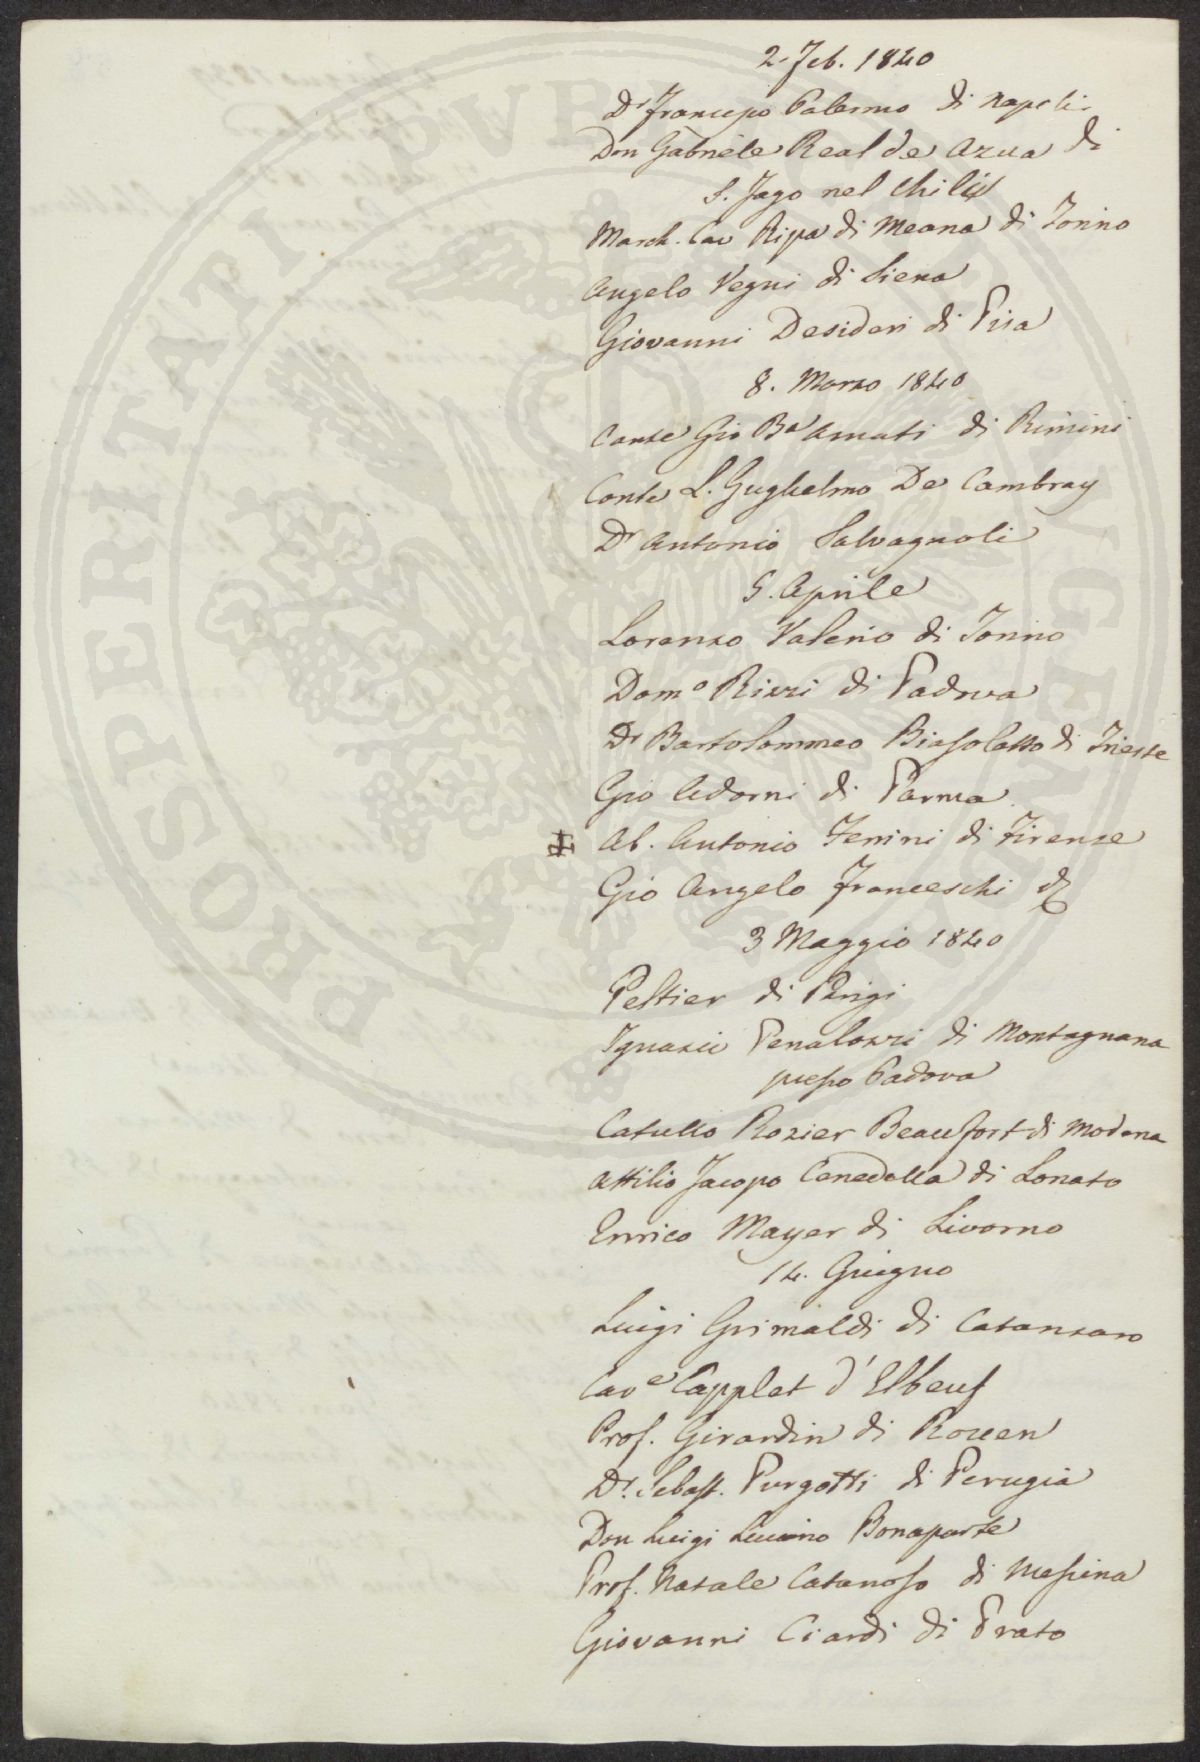 2. Feb. 1840
Dr Francesco Palermo di Napoli
Don Gabriele Real de Azua di
S. Jago nel Chili
March. Cav Ripa di Meana di Torino
Angelo Vegni di Siena
Giovanni Desideri di Pisa
8. Marzo 1840
Conte Gio Ba Amati di Rimini
Conte L. Guglielmo De Cambray
Dr Antonio Salvagnoli
5. Aprile
Lorenzo Valerio di Torino
Domo Rizzi di Padova
Dr Bartolommeo Biasoletto di Trieste
Gio Adorni di Parma
Ab. Antonio Ferrini di Firenze
Gio Angelo Franceschi di
3 Maggio 1840
Peltier di Parigi
Ignazio Penalozzi di Montagnana
presso Padova
Catullo Rozier Beaufort di Modena
Attilio Jacopo Cenedella di Lonato
Enrico Mayer di Livorno
14. Giugno
Luigi Grimaldi di Catanzaro
Cave Capplet d'Elbeuf
Prof. Girardin di Rouen
Dr. Sebast. Purgotti di Perugia
Don Luigi Luciano Bonaparte
Prof. Natale Catanoso di Messina
Giovanni Ciardi di Prato
PROSPERITATI PVBLICAE AVGENDAE